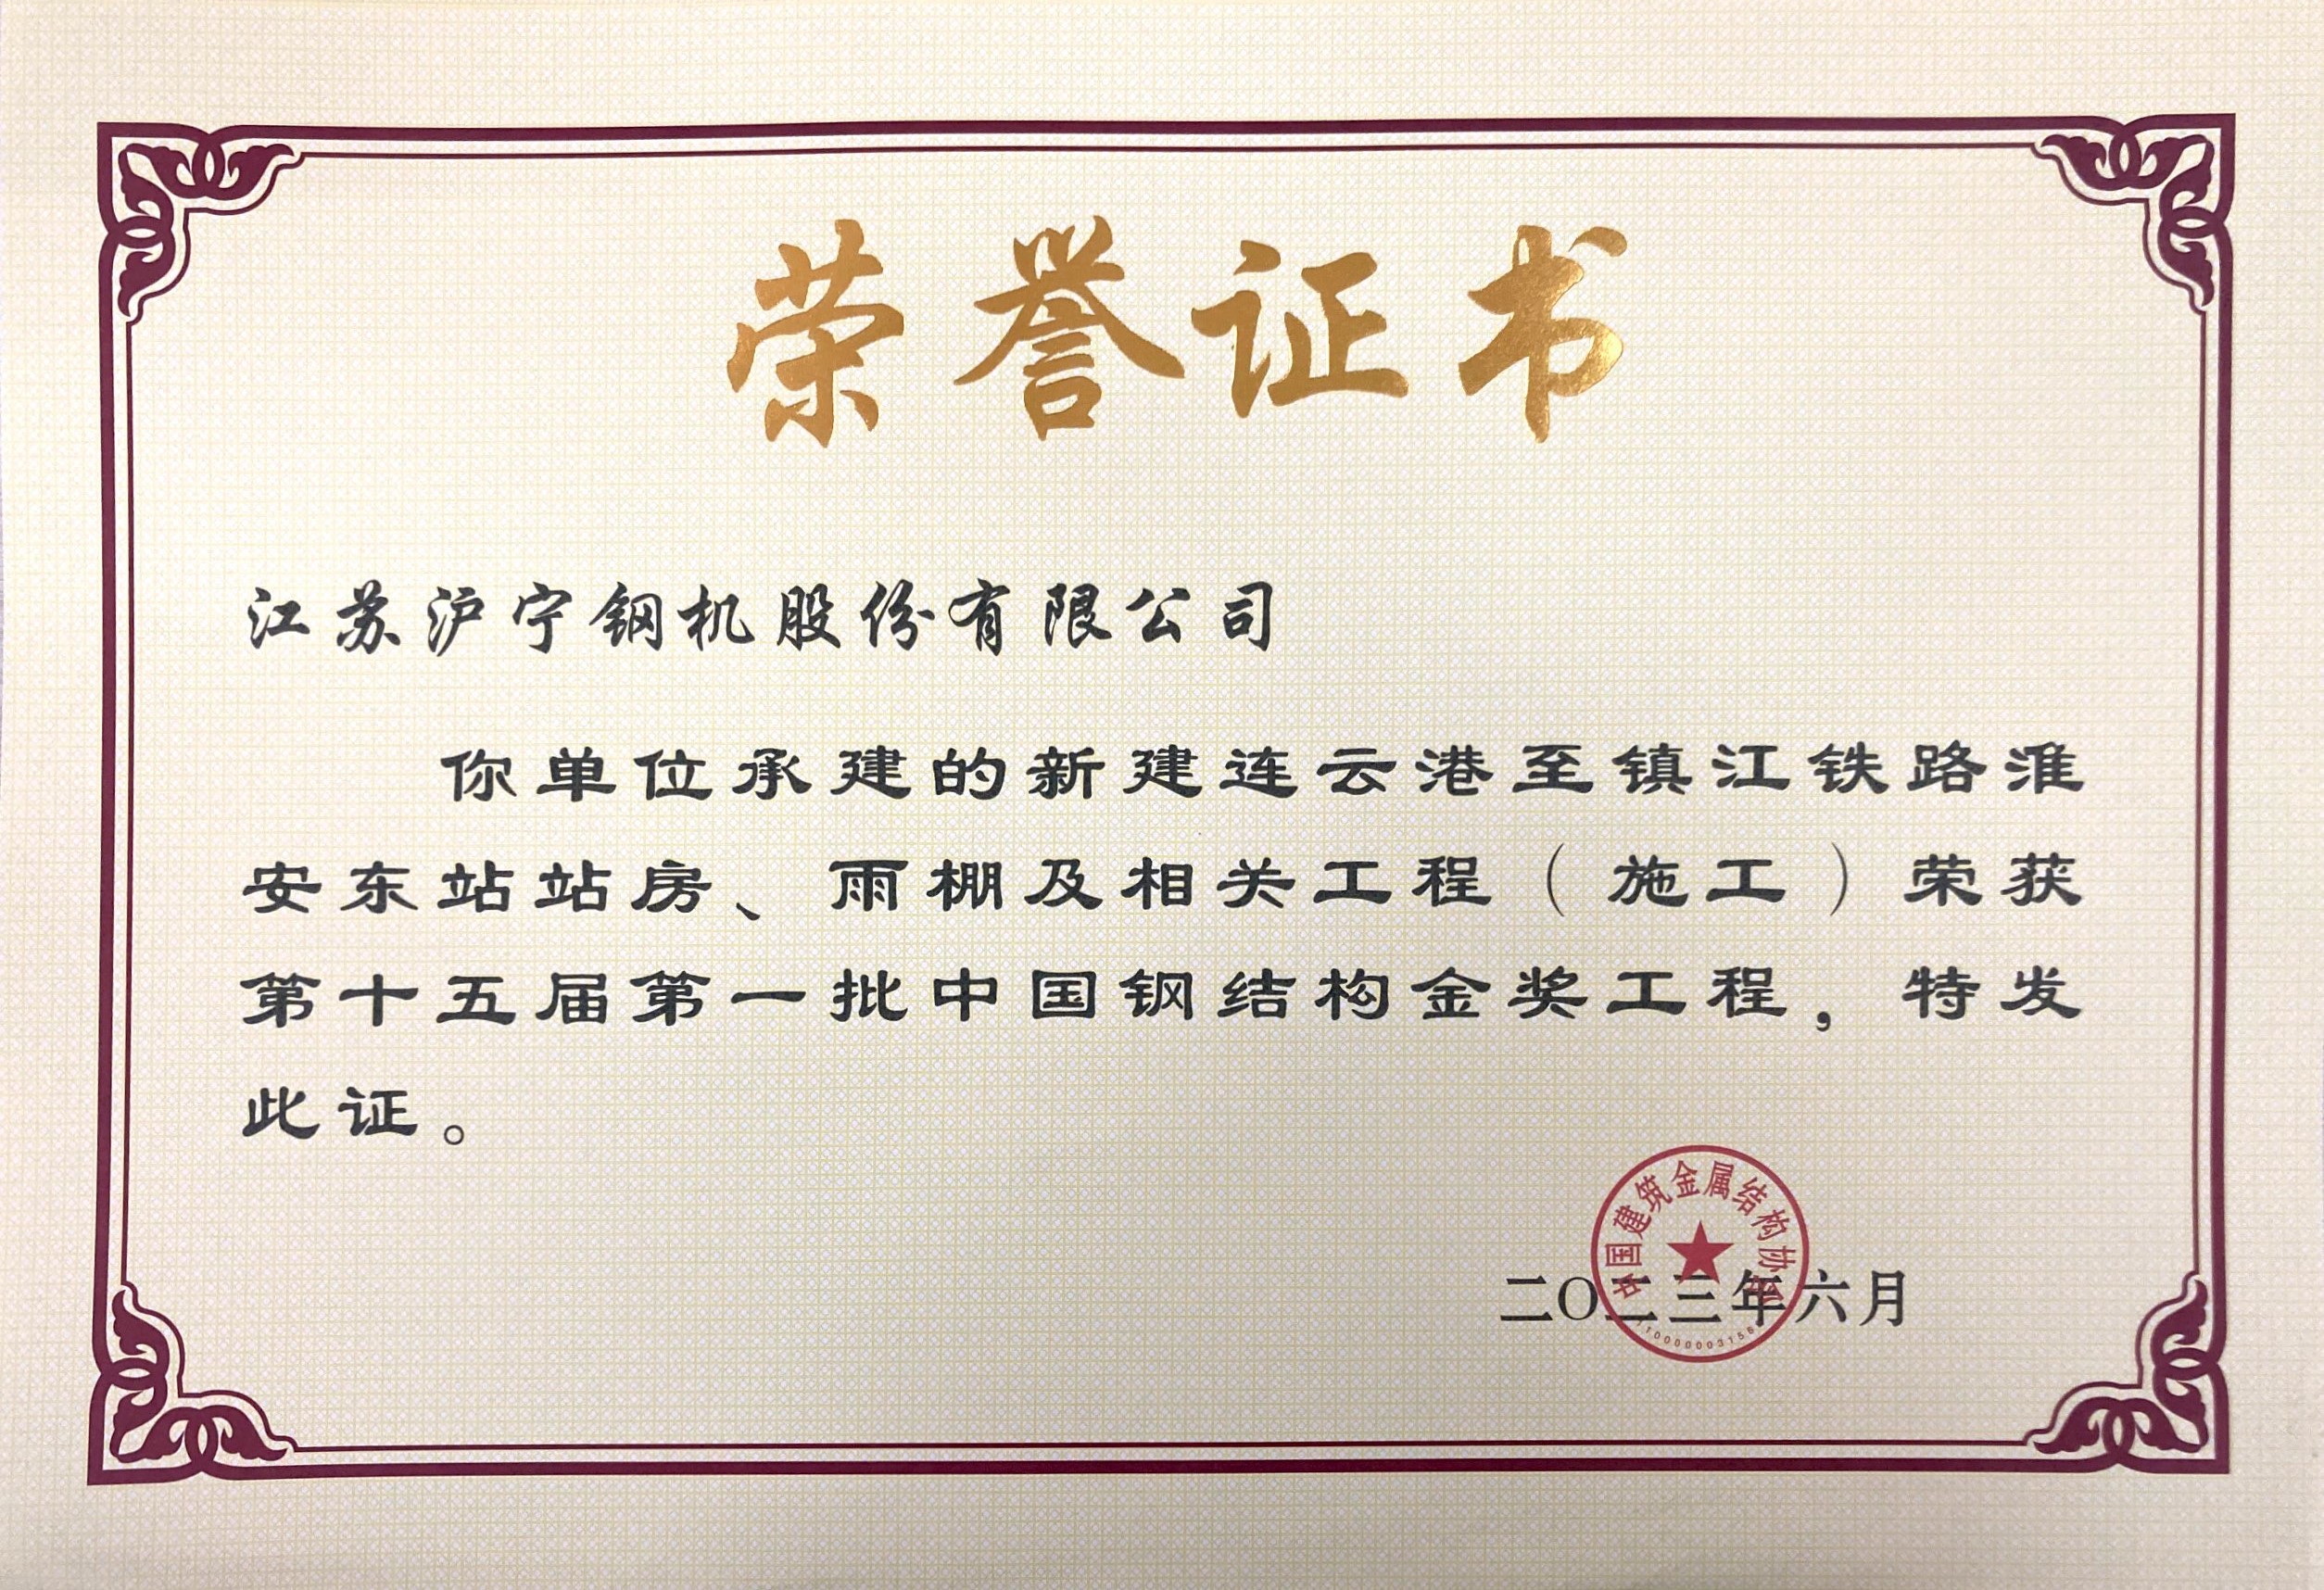 荣誉证书
江苏沪宁钢机股份有限公司
你单位承建的新建连云港至镇江铁路淮
安东站站房、雨棚及相关工程（施工）荣获
第十五届第一批中国钢结构金奖工程，特发
此证。
中国建筑金属结构协
二〇二三年六月